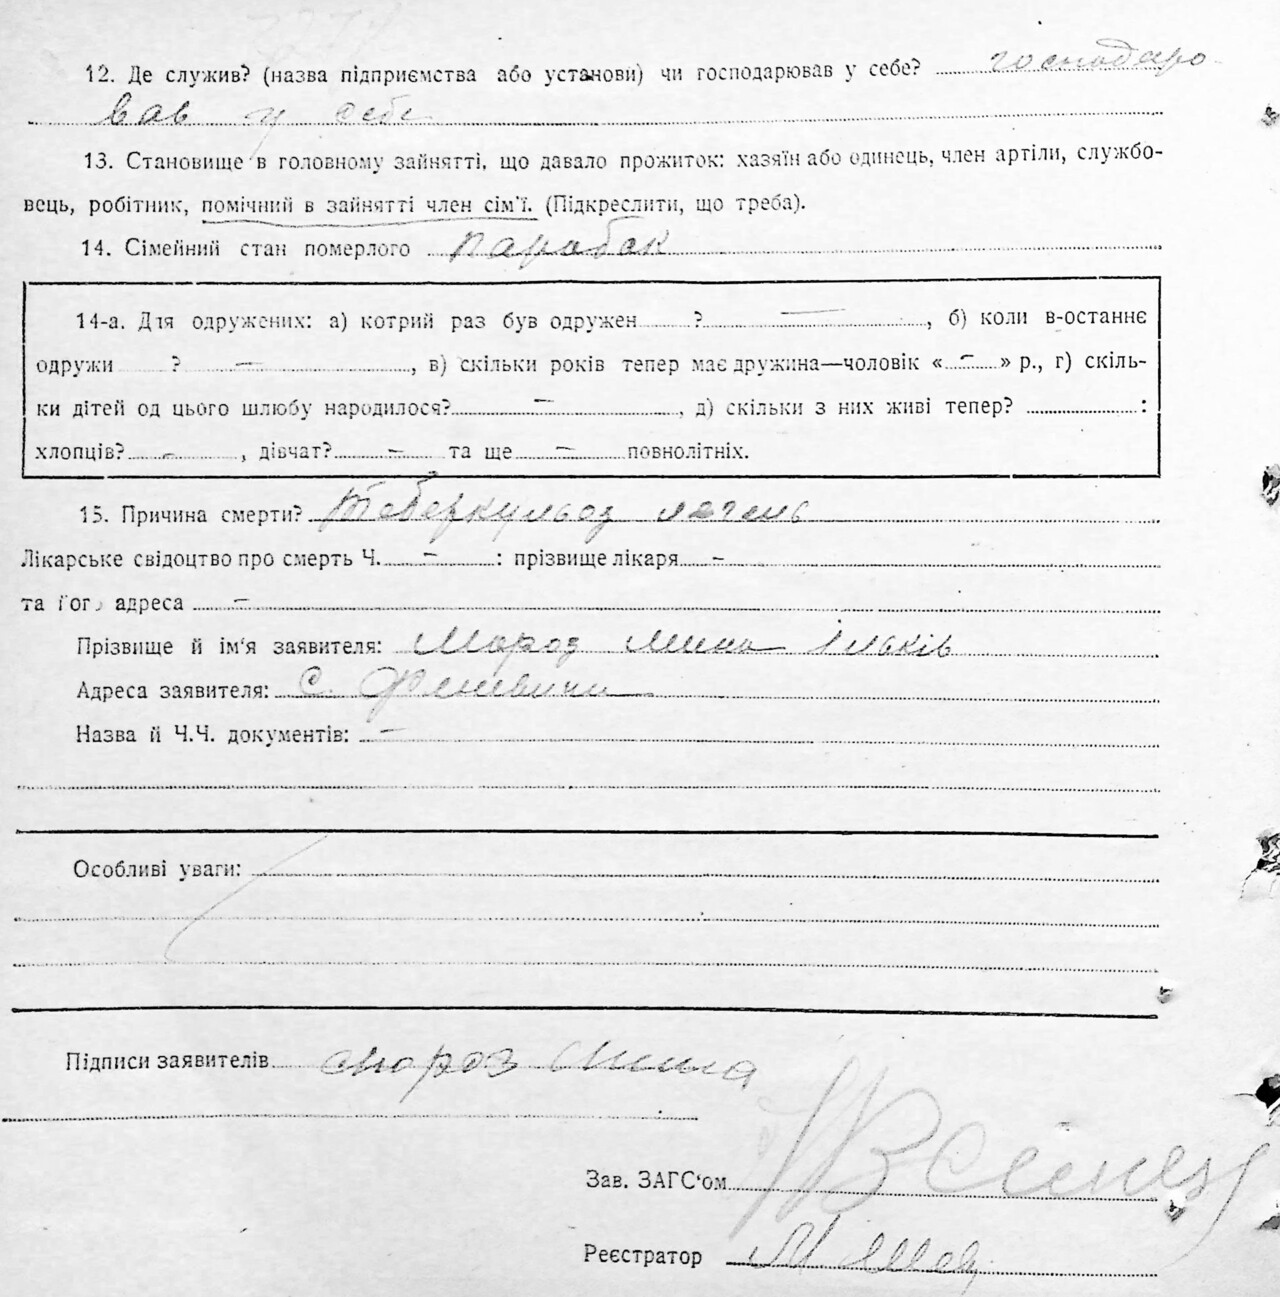 12. Де служив? (назва підприємства або установи) чи господарював у себе? господаро
вав у себе
13. Становище в головному зайнятті, що давало прожиток: хазяїн або одинець, член артіли, службо-
вець, робітник, помічний в зайнятті член сім'ї. (Підкреслити, що треба).
14. Сімейний стан померлого парубак
14-а. Для одружених: а) котрий раз був одружен ? —, б) коли в-останнє
одружи ? —, в) скільки років тепер має дружина—чоловік « – » р., г) скіль-
ки дітей од цього шлюбу народилося? –, д) скільки з них живі тепер? :
хлопців? -, дівчат? – та ще – повнолітніх.
15. Причина смерти? Теберкульоз легень
Лікарське свідоцтво про смерть Ч. – : прізвище лікаря –
та його адреса –
Прізвище й ім'я заявителя: Мороз Мина Ільків
Адреса заявителя: с.
Назва й Ч.Ч. документів: –
Особливі уваги:
Підписи заявителів Мороз Мина
Зав. ЗАГС'ом
Реєстратор